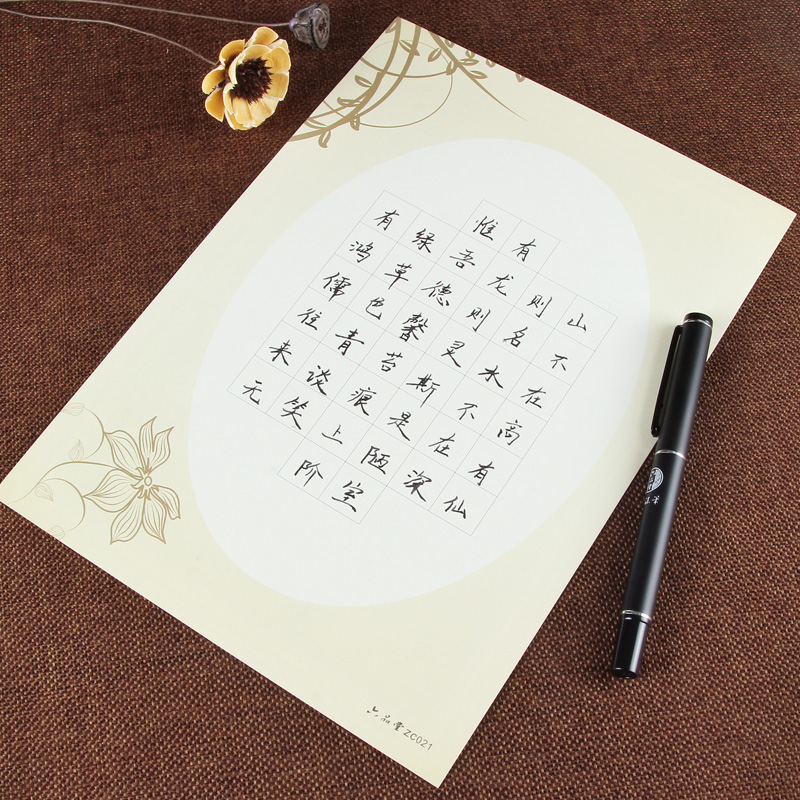 山不在高有仙
则名水不在深
有龙则灵斯是陋室
惟吾德馨苔痕上阶
绿草色青谈笑
有鸿儒往来无
六品堂 ZC021